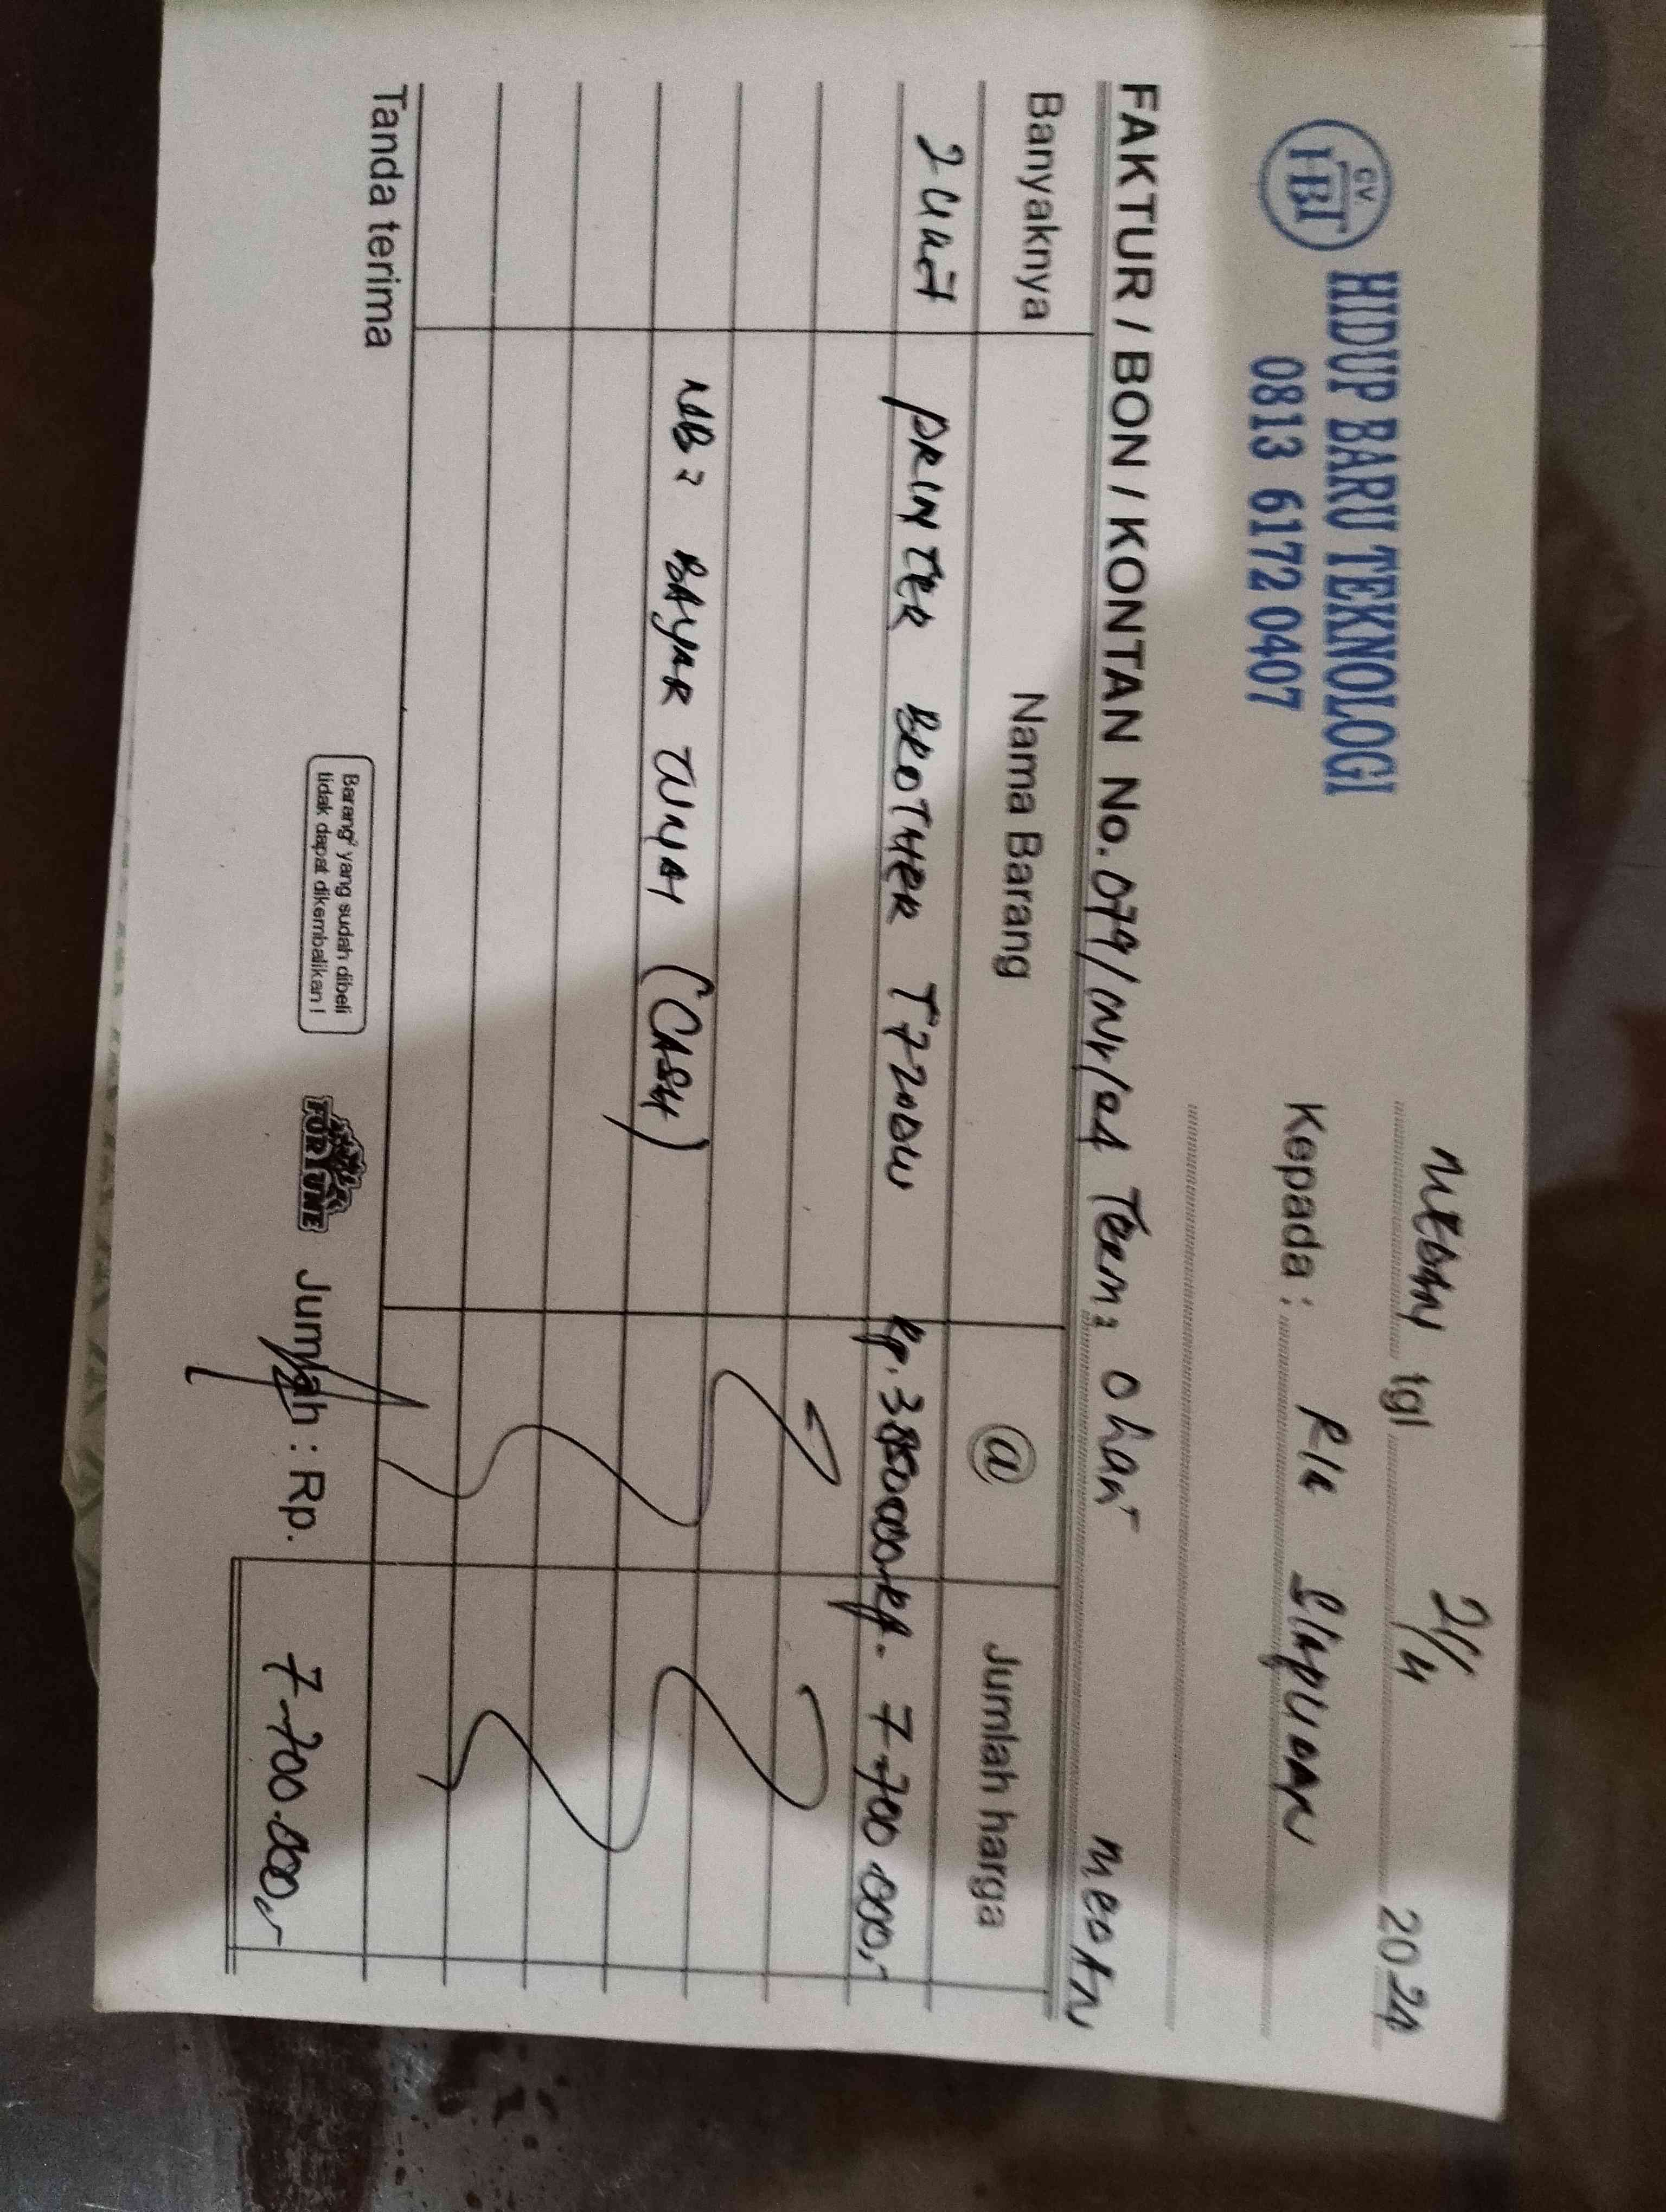 CV
HBT
HIDUP BARU TEKNOLOGI
0813 6172 0407
MEDAN tgl 2/4 2024
Kepada : RIA SIAPUAN
FAKTUR / BON / KONTAN No. 079/ Term: MEDAN
Banyaknya Nama Barang @ Jumlah harga
2 unit PRINTER BROTHER T720DW Rp. 3850000,- Rp. 7.700.000,-
NB: BAYAR TUNAI (CASH)
Tanda terima
Barang² yang sudah dibeli
tidak dapat dikembalikan !
FORTUNE
Jumlah : Rp. 7.700.000,-